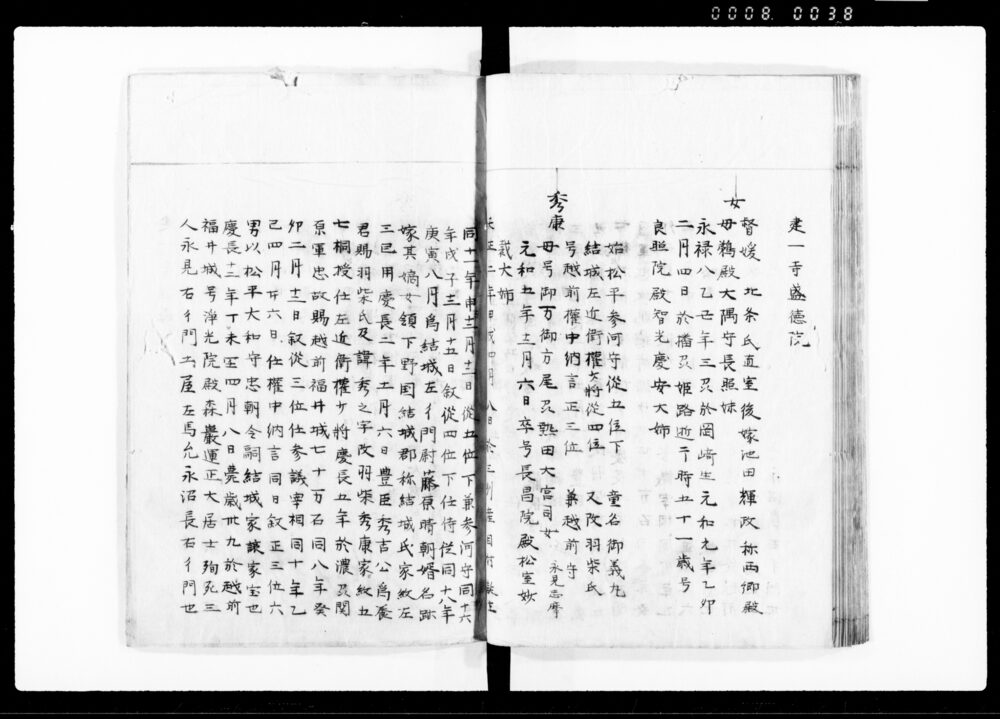 0008.0038
建一寺盛徳院
女
督媛 北条氏直室後嫁池田輝政称西御殿
母鵜殿大隅守長照妹
永禄八乙丑年三刕於岡崎生元和元年乙卯
二月四日於播刕姫路逝二時五十一歳号
良照院殿智光慶安大姉
秀康
始松平参河守従五位下 童名御義丸
結城左近衛権大将従四位 又改羽柴氏
号越前権中納言正三位 兼越前守
母号御万御方尾刕熱田大宮司女 永見志摩
元和五年十二月六日卒号長昌院殿松室妙
哉大姉
天正二年甲戌四月八日於三州産目村誕生
同十二年申十二月十二日従五位下兼参河守同十六
年戊子十二月十五日叙従四位下任侍従同十八年
庚寅八月為結城左衛門尉藤原晴朝婿名跡
嫁其嫡女領下野国結城郡称結城氏家紋左
三巴用慶長二年十一月六日豊臣秀吉公為養
君賜羽柴氏及諱秀之字改羽柴秀康家紋五
七桐授任左近衛権少将慶長五年於濃刕関
原軍忠故賜越前福井城七十万石同八年癸
卯二月十二日叙従三位任参議宰相同十年乙
己四月廿六日任権中納言同日叙正三位六
男以松平大和守忠朝令嗣結城家譲家宝也
慶長十二年丁未四月八日薨歳卅九於越前
福井城号浄光院殿森巌運正大居士殉死三
人永見右衛門土屋左馬允永沼長右衛門也